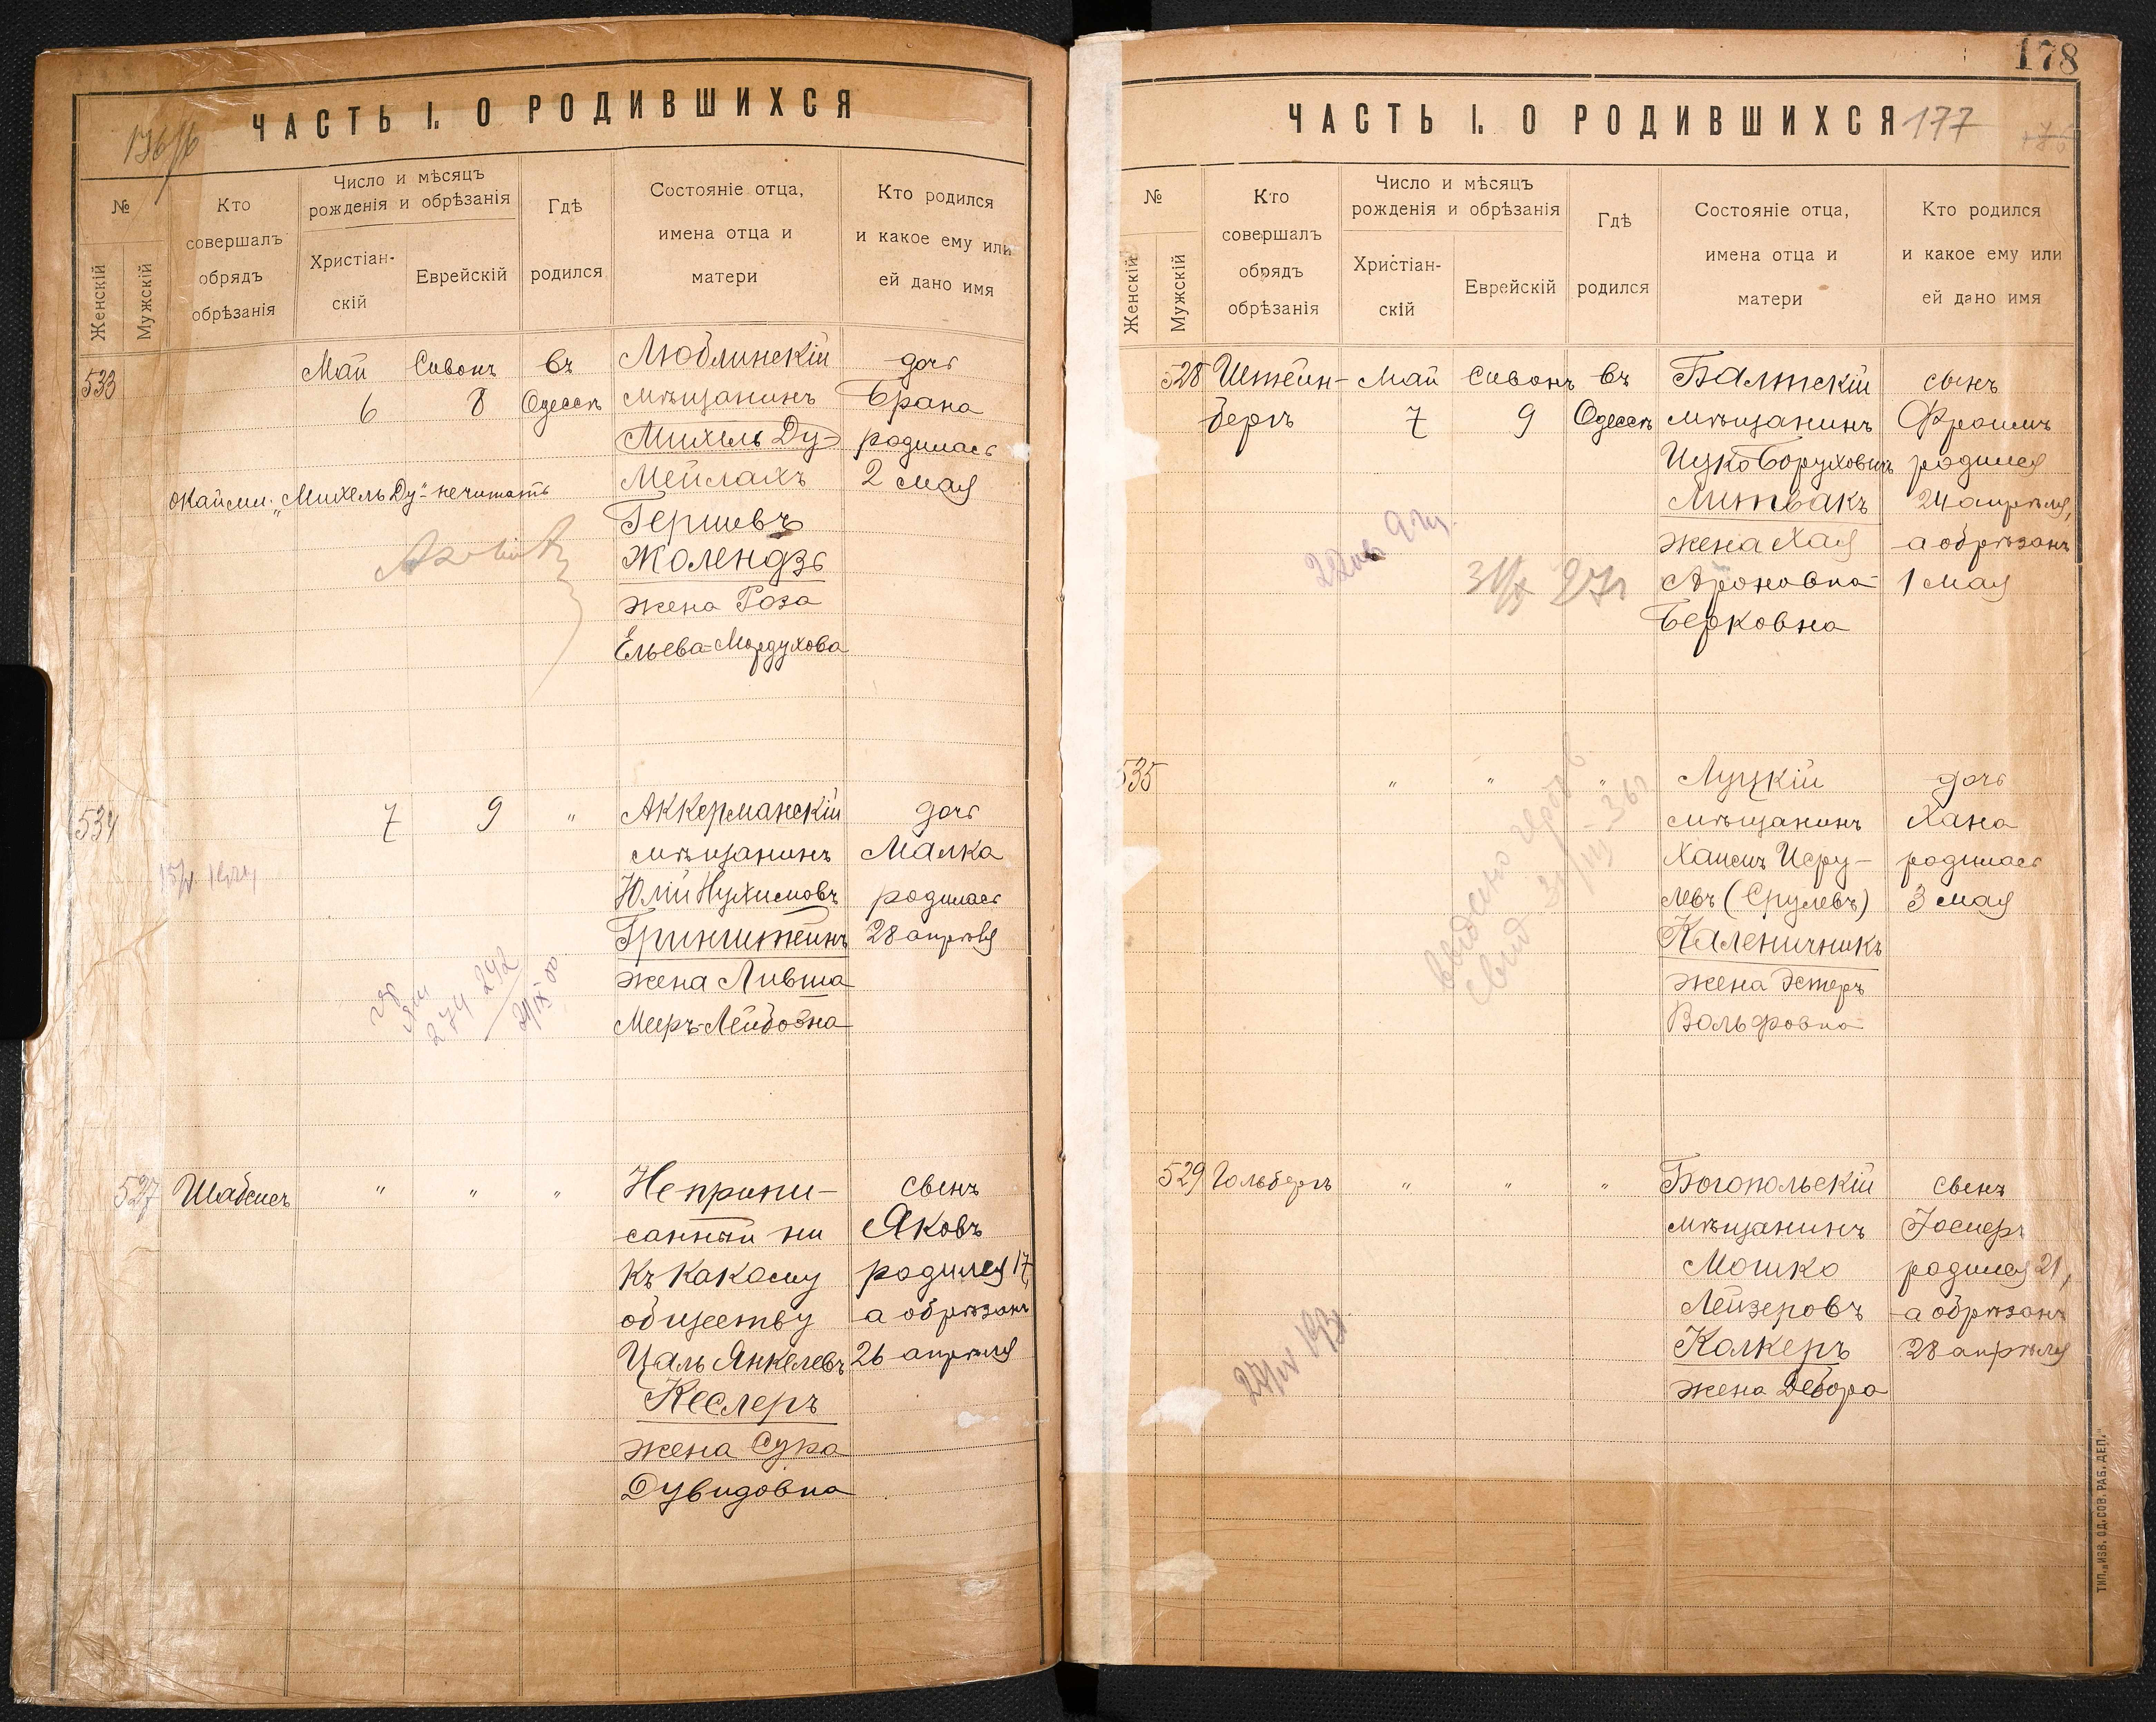 ЧАСТЬ I. О РОДИВШИХСЯ
№
Женскій
Мужскій
Кто
совершалъ
обрядъ
обрѣзанія
Число и мѣсяцъ
рожденія и обрѣзанія
Христіан-
скій
Еврейскій
Гдѣ
родился
Состояніе отца,
имена отца и
матери
Кто родился
и какое ему или
ей дано имя
533
Май
6
Сивонъ
8
въ
Одессѣ
Люблинскій
мѣщанинъ
Михель Ду-
Мейлахъ
Гершевъ
Жолендзь
жена Роза
Ельева-Мордухова
дочь
Брана
родилась
2 мая
Окайми. „Михель Ду-" нечитать
534
7
9
"
Аккерманскій
мѣщанинъ
Юлій Нухимовъ
Гринштейнъ
жена Ливша
Мееръ-Лейбовна
дочь
Малка
родилась
28 апрѣля
274 292
527
Шабсисъ
"
"
"
Неприпи-
санный ни
къ какому
обществу
Цаль Янкелевъ
Кеслеръ
жена Сура
Дувидовна
сынъ
Яковъ
родился 17,
а обрѣзанъ
26 апрѣля
178
ЧАСТЬ I. О РОДИВШИХСЯ
177
№
Женскій
Мужскій
Кто
совершалъ
обрядъ
обрѣзанія
Число и мѣсяцъ
рожденія и обрѣзанія
Христіан-
скій
Еврейскій
Гдѣ
родился
Состояніе отца,
имена отца и
матери
Кто родился
и какое ему или
ей дано имя
528
Штейн-
бергъ
Май
7
Сивонъ
9
въ
Одессѣ
Балтскій
мѣщанинъ
Ицко Боруховичъ
Литвакъ
жена Хая
Ароновна-
Берковна
сынъ
Фроимъ
родился
24 апрѣля,
а обрѣзанъ
1 мая
535
"
"
"
Луцкій
мѣщанинъ
Хаимъ Исру-
левъ (Срулевъ)
Каленичникъ
жена Эстеръ
Вольфовна
дочь
Хана
родилась
3 мая
выдано
свид
529
Гольбергъ
"
"
"
Богопольскій
мѣщанинъ
Мошко
Лейзеровъ
Колкеръ
жена Дебора
сынъ
родился 21,
а обрѣзанъ
28 апрѣля
ТИП. „ИЗВ. ОД. СОВ. РАБ. ДЕП."